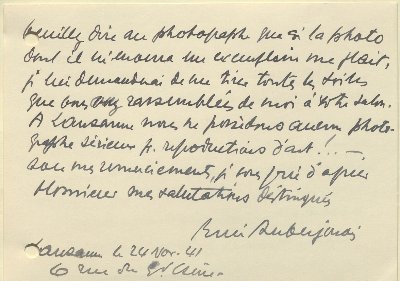 Veuillez dire au photographe que si la photo
dont il m'enverra un exemplaire me plaît,
je lui demanderai de me tirer toutes les toiles
que vous avez rassemblées de moi à votre salon.
A Lausanne nous ne possédons aucun photo-
graphe sérieux pr. reproductions d'art! . —
mes remerciements, je vous prie d'agréer
Monsieur mes salutations distinguées
René Auberjonois
Lausanne le 24 Nov. 41
6 rue du Gd. Chêne.